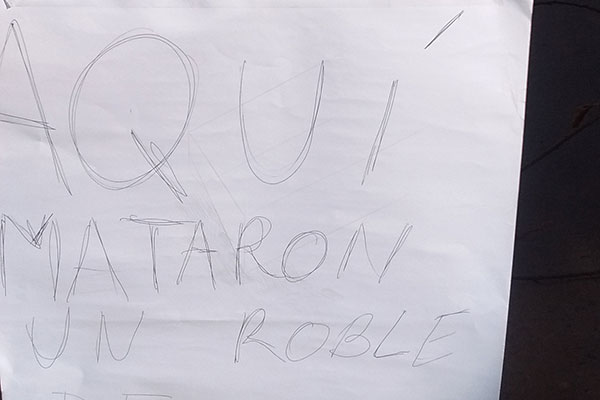 AQUÍ
MATARON
UN ROBLE
DE